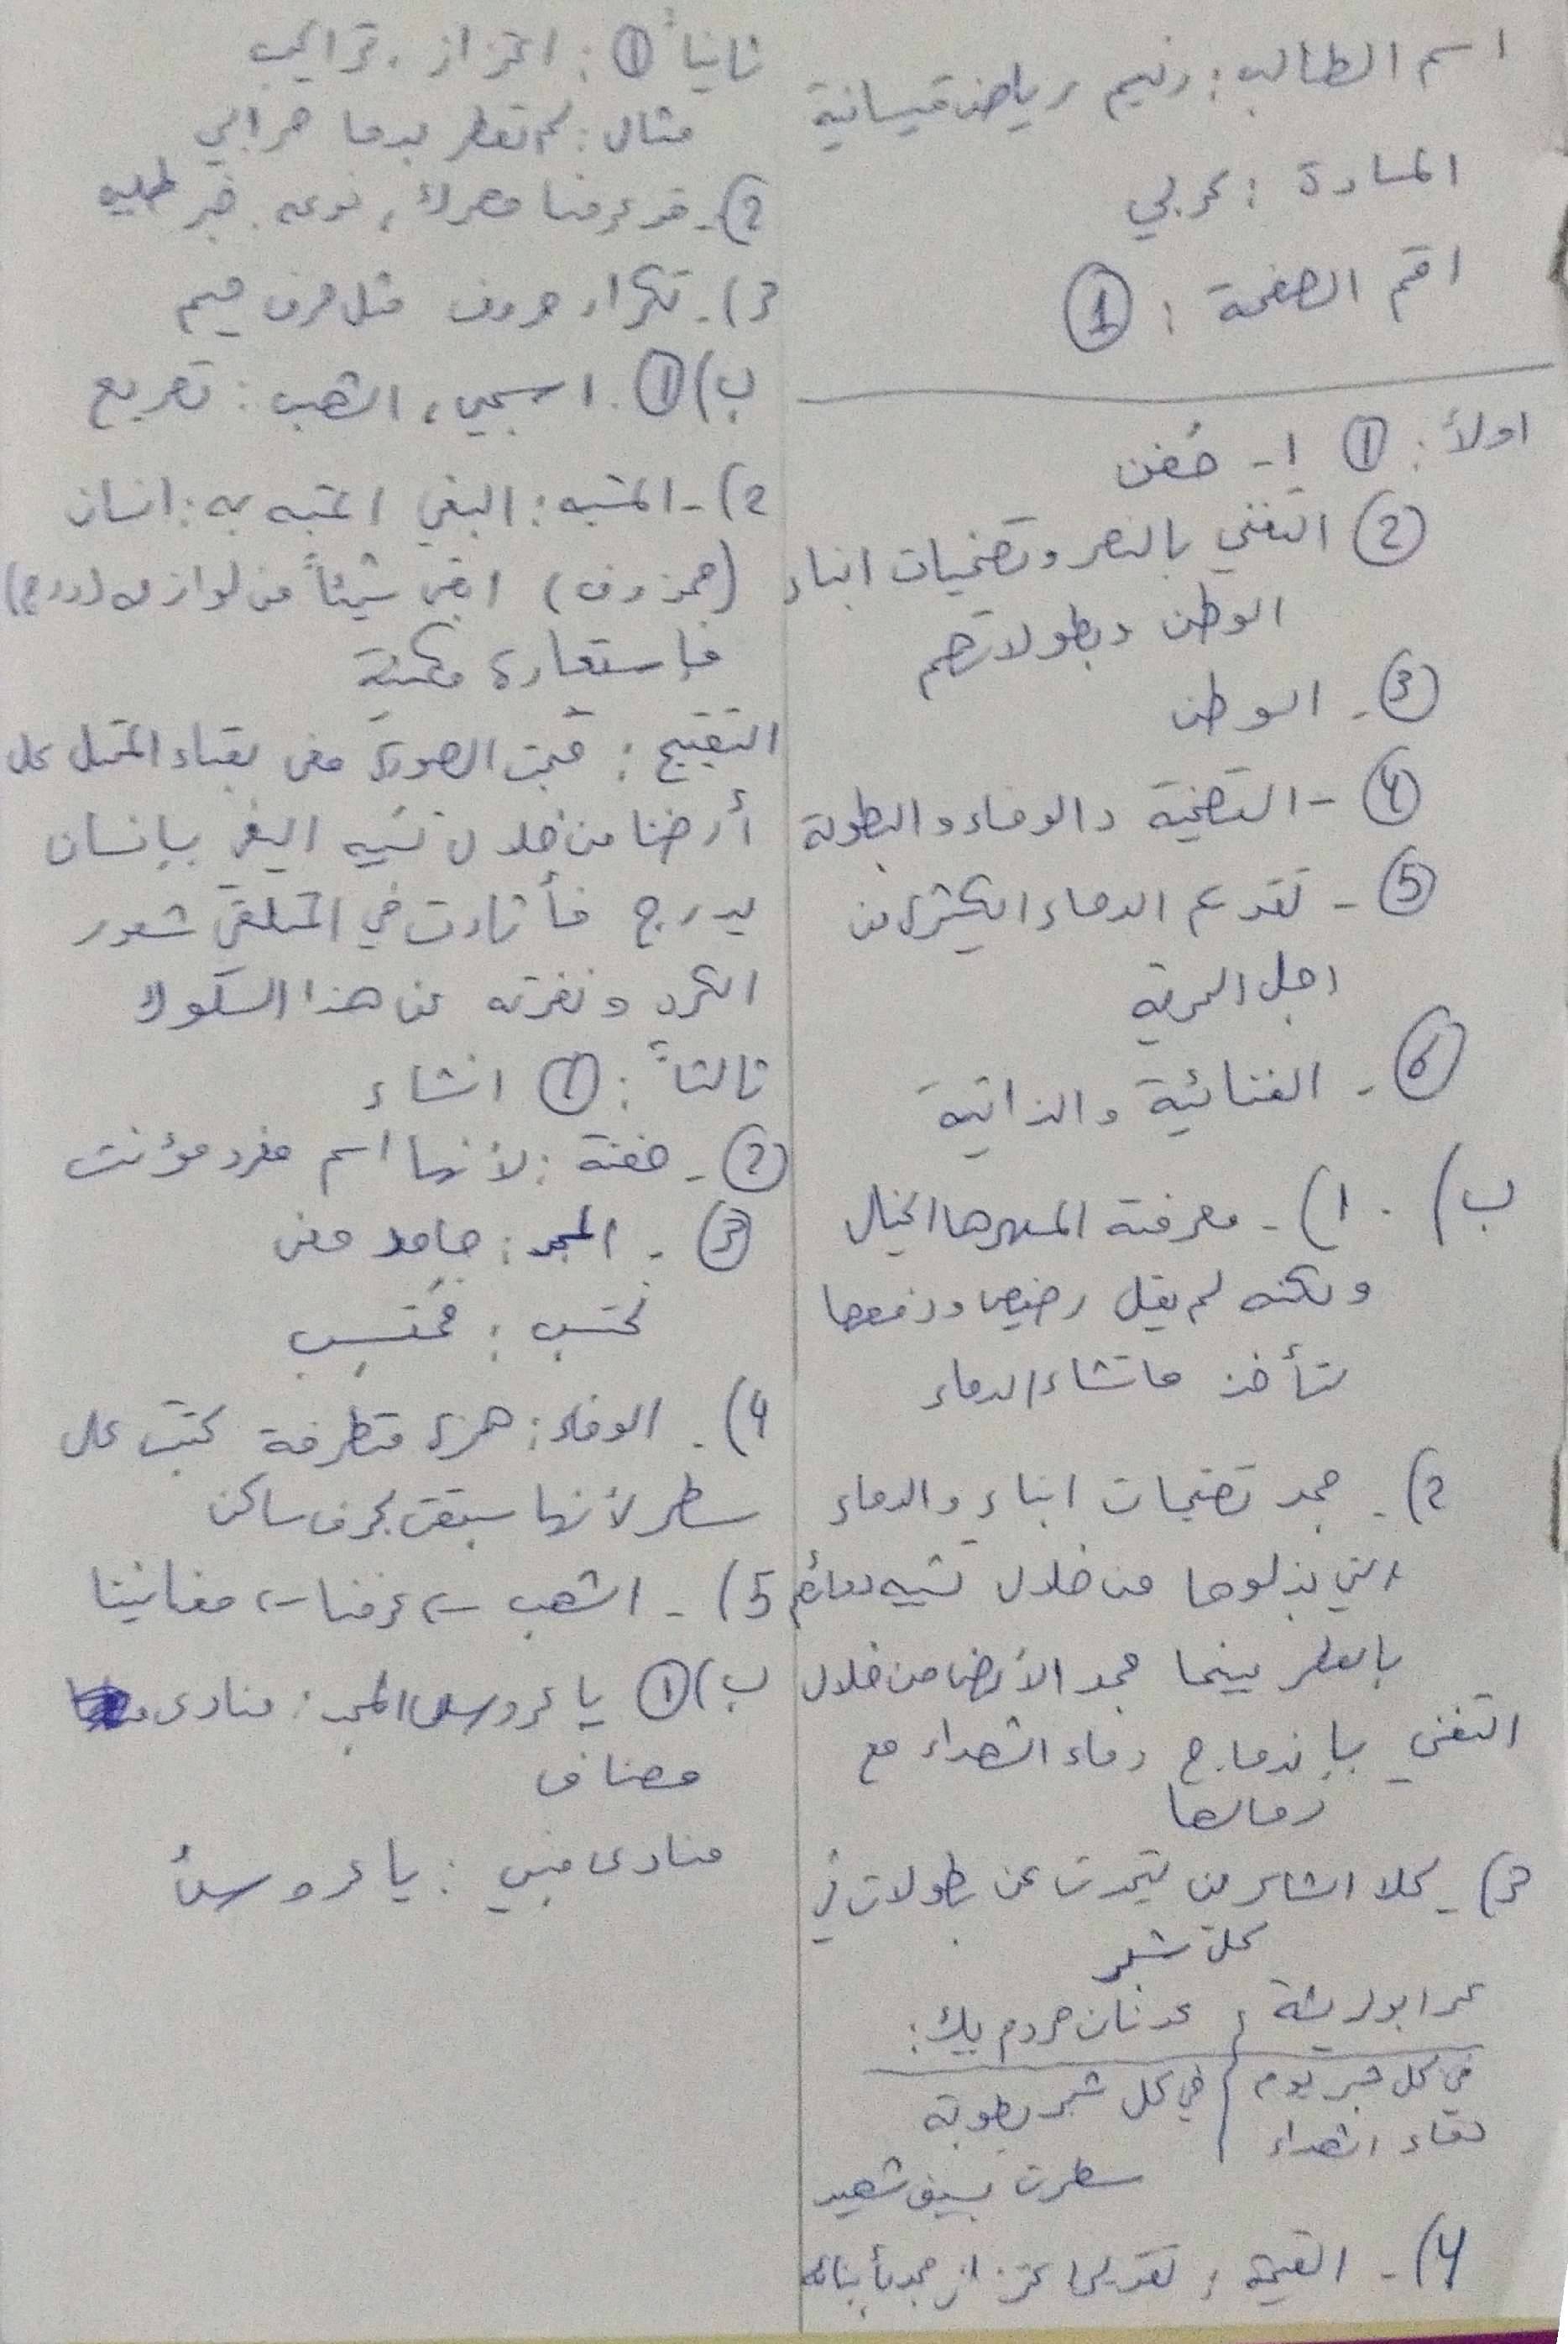 اسم الطالب: رنيم رياض قيسانية
المادة: عربي
اقم الصفحة: ①
اولاً: ① ١- حُفن
② التغني بالنصر وتضحيات ابناء
الوطن وبطولاتهم
③ - الوطن
④ - التضحية والوفاء والبطولة
⑤ - تقديم الدماء الكثيرة من
اجل الحرية
⑥ - الغنائية والذاتية
ب) ٠ ١) - معرفته المهرها الغالي
ولكنه لم يقل رخيص ودفعها
لتأخذ ما تشاء الدماء
2) - مجد تضحيات ابناء والدماء
التي بذلوها من خلال تشبيه دمائهم
بالعطر بينما مجد الأرض من خلال
التغني بإندماج دماء الشهداء مع
رمالها
3) - كلا الشاعرين يتحدث عن بطولات في
كل شبر
عمر ابو ريشة , عدنان مردم بيك:
في كل شبر يوم | في كل شبر بطولة
دماء الشهداء
سطرت بسيف شهيد
4) - القيمة : تقدير اعتزاز مجد بأبنائه
ثانياً ①: اعتزاز , تراكيب
مثال: لم تعطر بدما حرابي
② - قد عرفنا مهرك , نوعه خبر طلبي
3) - تكرار حروف مثل حرف ميم
ب) ① . اسحبي , الشهب : تصريع
2) - المشبه: البغي المشبه به: انسان
(محذوف) ابقى شيئاً من لوازمه (درج)
فإستعارة مكنية
التقبيح: قبحت الصورة معنى بقاء المحتل على
أرضنا من خلال تشبيه البغي بإنسان
يدرج فأثارت في المتلقي شعور
الكره ونفرته عن هذا السلوك
ثالثاً: ① انشاء
② - حفنة: لأنها اسم مفرد مؤنث
③ - المجد: جامد معنى
نحتسب : مُحتسِب
4) - الوفاء: همزة متطرفة كتبت على
سطر لأنها سبقت بحرف ساكن
5) - الشهب ← عرفنا ← مغانينا
ب) ① يا عروس المجد: منادى
مضاف
منادى مبني : يا عروسُ